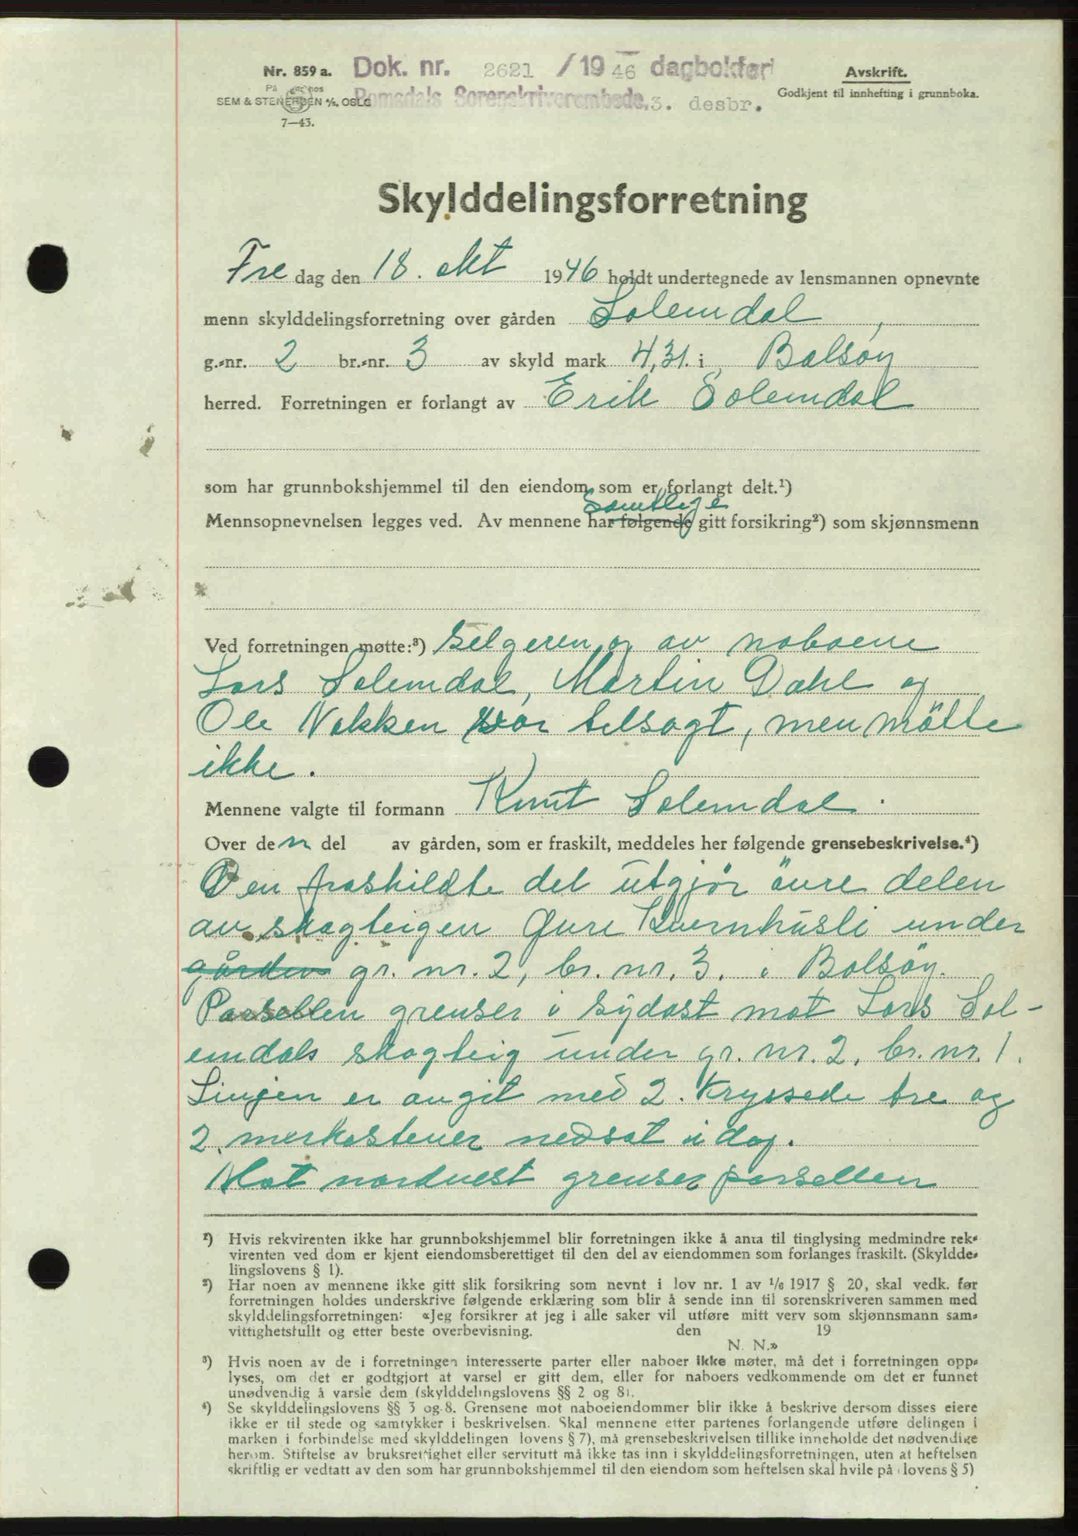 Nr. 859 a. Dok. nr. 2621 / 19 46 dagbokført Avskrift.
Romsdals Sorenskriverembede, 3. desbr. Godkjent til innhefting i grunnboka.
SEM & STENERSEN A/S, OSLO
7—43.
Skylddelingsforretning
Fre dag den 18. okt 1946 holdt undertegnede av lensmannen opnevnte
menn skylddelingsforretning over gården Solemdal,
g.-nr. 2 br.-nr. 3 av skyld mark 4,31. i Bolsøy
herred. Forretningen er forlangt av Erik Solemdal
som har grunnbokshjemmel til den eiendom som er forlangt delt.¹)
Samtlige
Mennsopnevnelsen legges ved. Av mennene har følgende gitt forsikring²) som skjønnsmenn
Ved forretningen møtte:³) Selgeren og av naboene
Lars Solemdal, Martin Dahl og
Ole Nakken var tilsagt, men mötte
ikke.
Mennene valgte til formann Knut Solemdal.
Over den del av gården, som er fraskilt, meddeles her følgende grensebeskrivelse.⁴)
Den fraskildte del utgjör övre delen
av skogteigen Övre Kvernhusli under
gården gr. nr. 2, br. nr. 3. i Bolsöy.
Parsellen grenser i sydost mot Lars Sol-
emdals skogteig under gr. nr. 2. br. nr. 1.
Linjen er angit med 2. kryssede tre og
2 merkestener nedsat idag.
Mot nordvest grenser parsellen
¹) Hvis rekvirenten ikke har grunnbokshjemmel blir forretningen ikke å anta til tinglysing medmindre rek-
virenten ved dom er kjent eiendomsberettiget til den del av eiendommen som forlanges fraskilt. (Skyldde-
lingslovens § 1).
²) Har noen av mennene ikke gitt slik forsikring som nevnt i lov nr. 1 av 1/6 1917 § 20, skal vedk. før
forretningen holdes underskrive følgende erklæring som blir å sende inn til sorenskriveren sammen med
skylddelingsforretningen: «Jeg forsikrer at jeg i alle saker vil utføre mitt verv som skjønnsmann sam-
vittighetsfullt og etter beste overbevisning. den 19
N. N.»
³) Hvis noen av de i forretningen interesserte parter eller naboer ikke møter, må det i forretningen opp-
lyses, om det er godtgjort at varsel er gitt dem, eller for naboers vedkommende om det er funnet
unødvendig å varsle dem (skylddelingslovens §§ 2 og 8).
⁴) Se skylddelingslovens §§ 3 og 8. Grensene mot naboeiendommer blir ikke å beskrive dersom disses eiere
ikke er til stede og samtykker i beskrivelsen. Skal mennene etter partenes forlangende utføre delingen i
marken i forbindelse med skylddelingen lovens § 7), må grensebeskrivelsen tillike inneholde det nødvendige
herom. Stiftelse av bruksrettighet eller servitutt må ikke tas inn i skylddelingsforretningen, uten at heftelsen
skriftlig er vedtatt av den som har grunnbokshjemmel til den eiendom som heftelsen skal hvile på (lovens § 5)